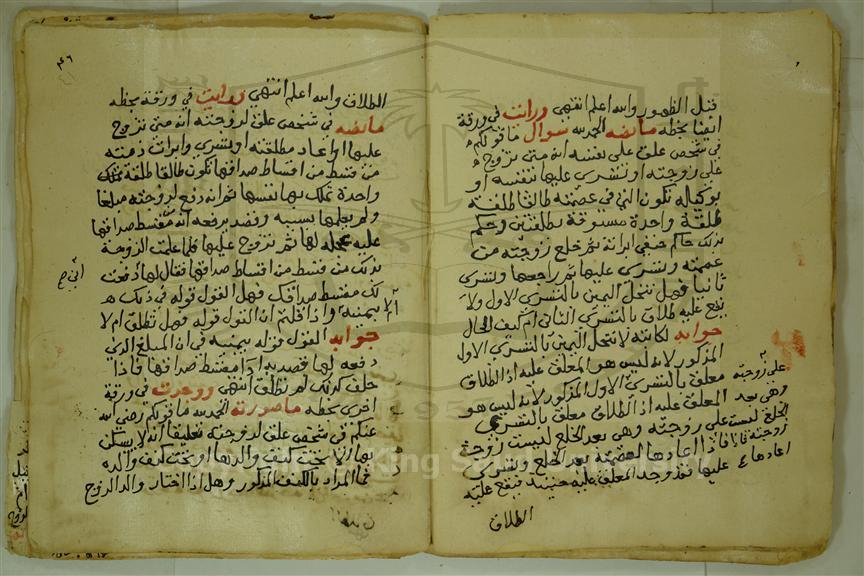 قبل الظهور والله اعلم انتهي ورايت في ورقة
ايضا بخطه ما نصه الحمد لله سوال ما قولكم
في شخص علق على نفسه انه متى تزوج
على زوجته او تسرى عليها بنفسه او
بوكيله تكون التي في عصمته طالقا طلقة
طلقة واحدة مسبوقة بطلقتين وحكم
بذلك حاكم حنفي ثم خلع زوجته من
عصمته وتسرى عليها ثم راجعها وتسرى
ثانيا فهل تنحل اليمين بالتسري الاول ولا
يقع عليه طلاق بالتسري الثاني ام كيف الحال
جوابه لكاتبه لا تنحل اليمين بالتسري الاول
المذكور لانه ليس هو المعلق عليه اذ الطلاق
معلق بالتسري الاول المذكور لانه ليس هو
المعلق عليه اذ الطلاق معلق بالتسري
على زوجته وهي بعد الخلع ليست زوجة
فاذا اعادها لعصمته بعد الخلع وتسرى
عليها فقد وجد المعلق عليه حينئذ فيقع عليه
الطلاق
على زوجته
وهي بعد
الخلع ليست
زوجته فاذا
اعادها
٤٦
الطلاق والله اعلم انتهي ورايت في ورقة بخطه
ما نصه في شخص علق لزوجته انه متى تزوج
عليها او اعاد مطلقته او تسرى وابرات ذمته
من قسط من اقساط صداقها تكون طالقا طلقة
واحدة تملك بها نفسها ثم انه دفع لزوجته مبلغا
ولم يعلمها بسببه وقصد بدفعه انه مقسط صداقها
عليه عجله لها ثم تزوج عليها فلما علمت الزوجة
بذلك من قسط من اقساط صداقها فقال لها دفعت
لك مقسط صداقك فهل القول قوله في ذلك
بيمينه واذا قلتم ان القول قوله فهل تطلق ام لا
جوابه القول قوله بيمينه في ان المبلغ الذي
دفعه لها قصد به اداء مقسط صداقها فاذا
حلف كذلك لم تطلق انتهي ووجدت في ورقة
اخرى بخطه ما صورته الحمد لله ما قولكم رضي الله
عنكم في شخص علق لزوجته تعليقا انه لا يسكن
بها الا تحت كنف والدها او تحت كنف والده
فما المراد بالكنف المذكور وهل اذا اختار والد الزوج
King Saud University